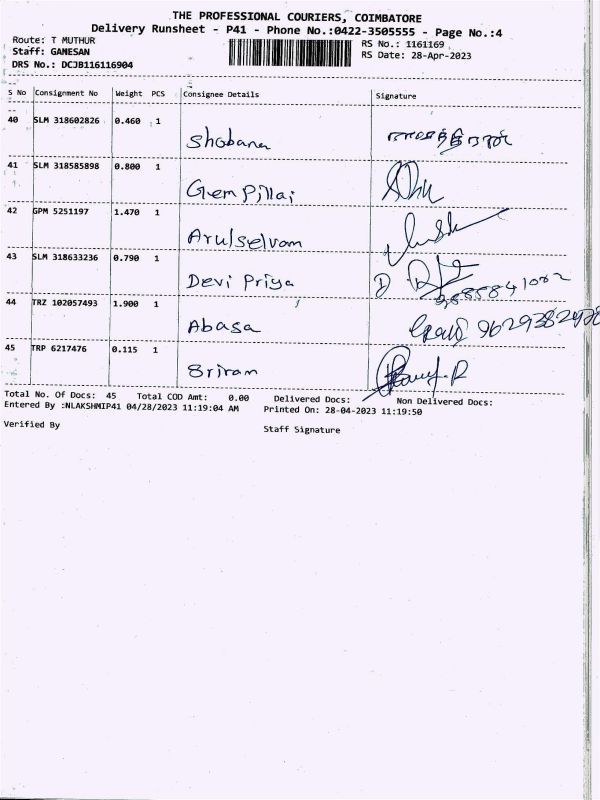 THE PROFESSIONAL COURIERS, COIMBATORE
Delivery Runsheet - P41 - Phone No.:0422-3505555 - Page No.:4
Route: T MUTHUR
RS No.: 1161169
Staff: GANESAN
RS Date: 28-Apr-2023
DRS No.: DCJB116116904
S No Consignment No Weight PCS Consignee Details Signature
40 SLM 318602826 0.460 1 Shobana
41 SLM 318585898 0.800 1 Gem Pillai
42 GPM 5251197 1.470 1 Arulselvam
43 SLM 318633236 0.790 1 Devi Priya D
44 TRZ 102057493 1.900 1 Abasa
45 TRP 6217476 0.115 1 Sriram
Total No. Of Docs: 45 Total COD Amt: 0.00 Delivered Docs: Non Delivered Docs:
Entered By :NLAKSHMIP41 04/28/2023 11:19:04 AM Printed On: 28-04-2023 11:19:50
Verified By
Staff Signature